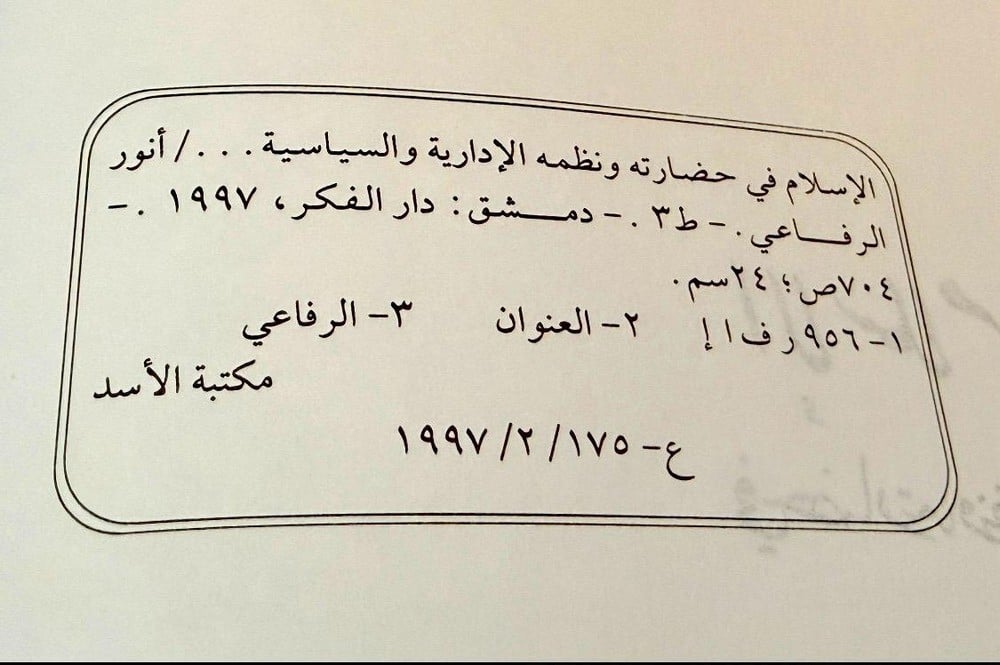 الإسلام في حضارته ونظمه الإدارية والسياسية . . . / أنور
الرفاعي . - ط٣ . - دمشق : دار الفكر ، ١٩٩٧ . -
٧٠٤ص ؛ ٢٤سم .
١- ٩٥٦ ر ف ا إ ٢- العنوان ٣- الرفاعي
مكتبة الأسد
ع- ١٧٥ / ٢ / ١٩٩٧